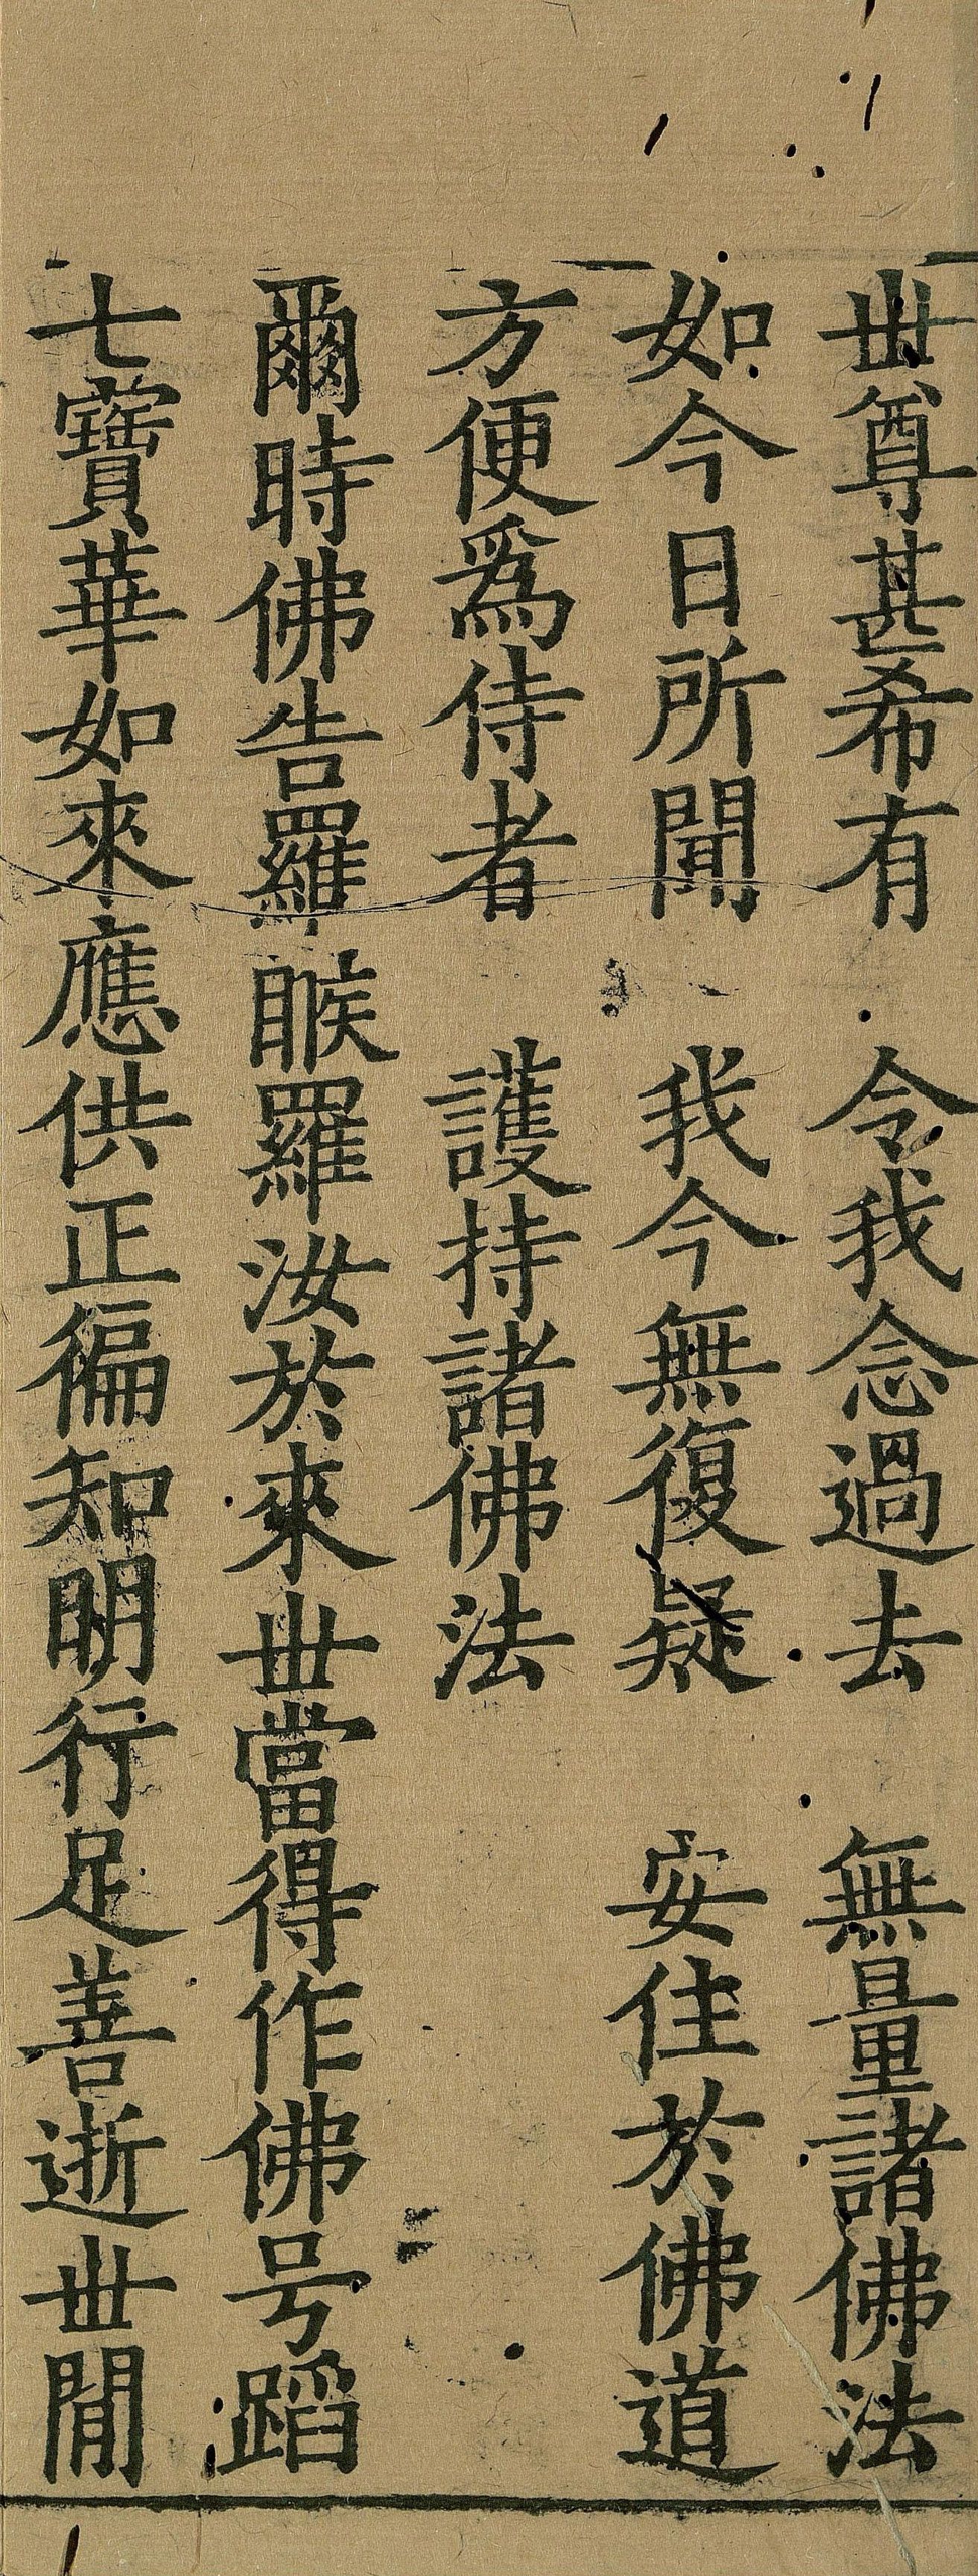 丗尊甚希有　令我念過去　無量諸佛法
如今日所聞　我今無復疑　安住於佛道
方便爲侍者　護持諸佛法
爾時佛告羅睺羅汝於來丗當得作佛号蹈
七寶華如來應供正徧知明行足善逝丗閒